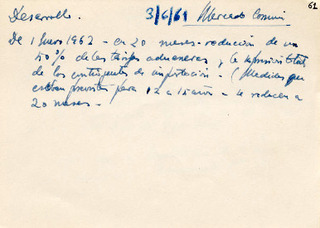 61
Desarrollo. 3/6/61 Mercado Común
De 1 Enero 1962 - en 20 meses - reducción de un
50% de las tarifas aduaneras y la supresión total
de los contingentes de importación - (Medidas que
estaban previstas para 12 a 15 años - se reducen a
20 meses -